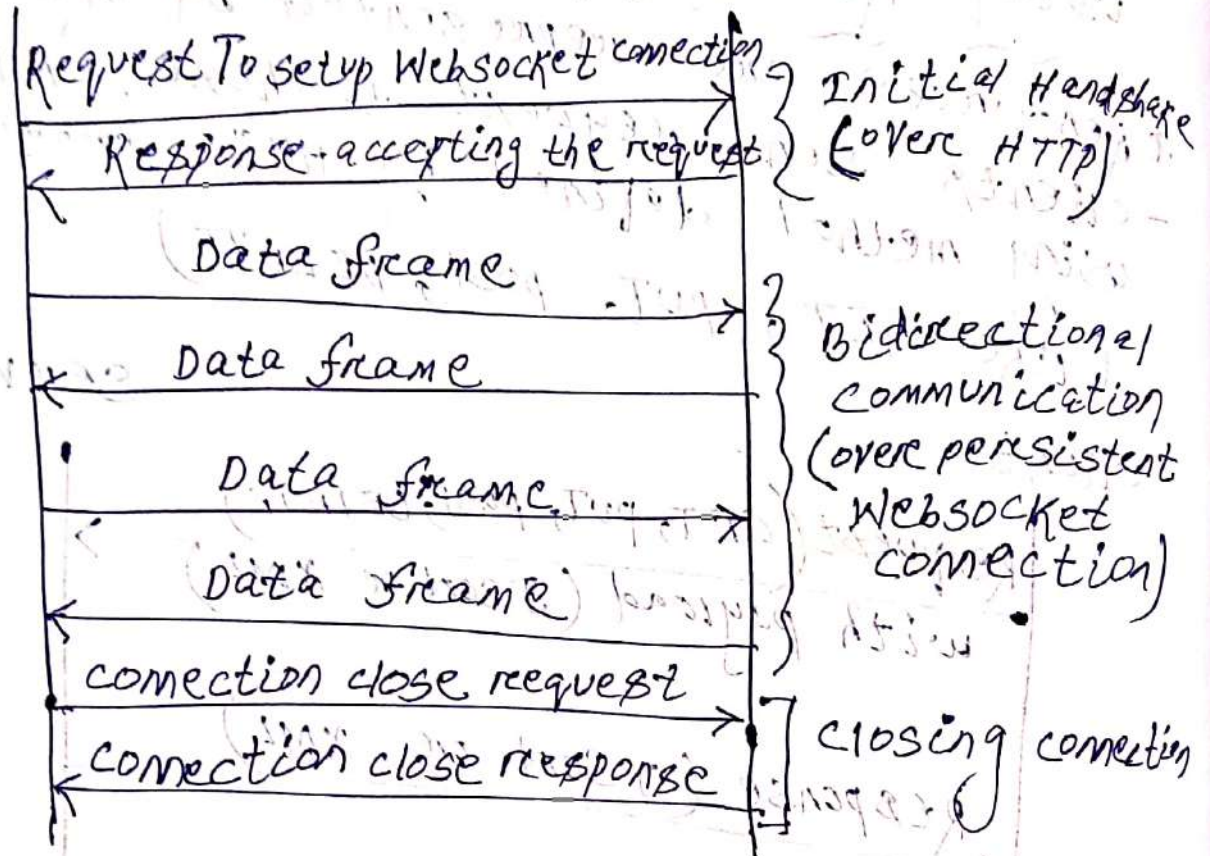 Request To setup Websocket conection
Response accepting the request
Initial Handshake
(over HTTP)
Data frame
Data frame
Data frame
Data frame
Bidirectional
communication
(over persistent
Websocket
connection)
conection close request
connection close response
closing connection